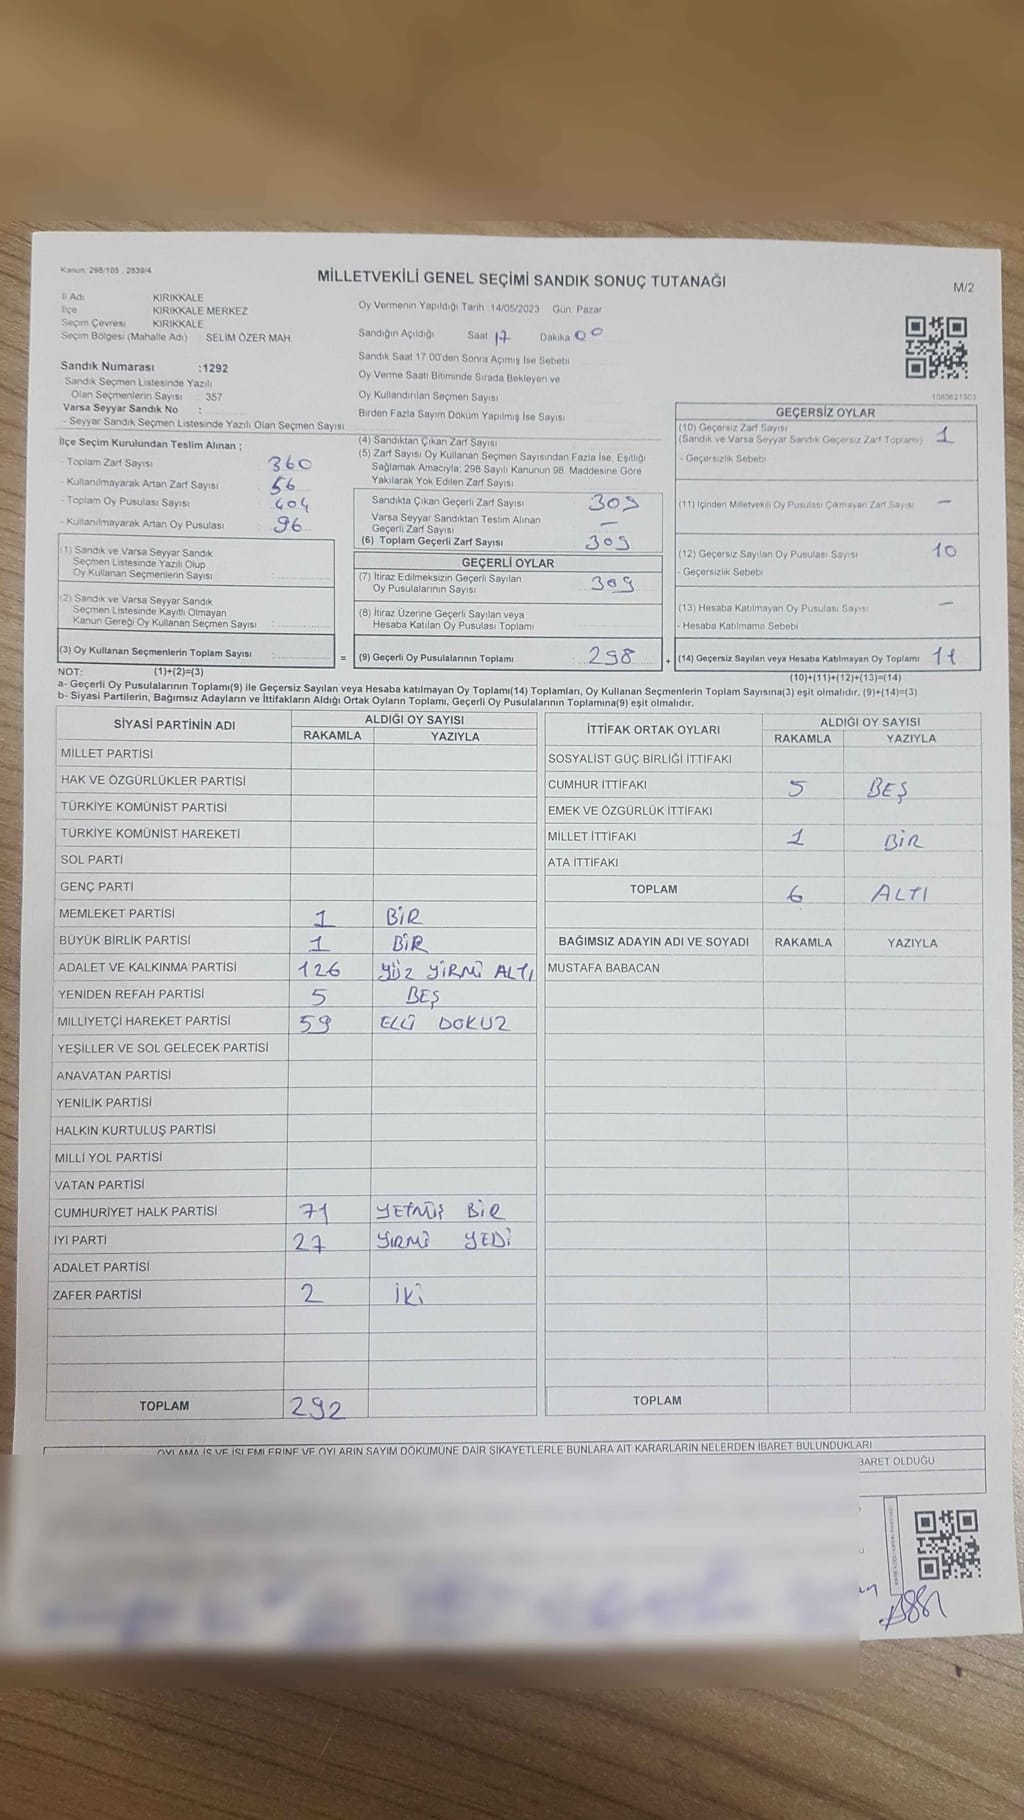 Kanun: 298/105 , 2839/4
MİLLETVEKİLİ GENEL SEÇİMİ SANDIK SONUÇ TUTANAĞI
M/2
İl Adı KIRIKKALE
İlçe KIRIKKALE MERKEZ
Seçim Çevresi KIRIKKALE
Seçim Bölgesi (Mahalle Adı) SELİM ÖZER MAH.
Sandık Numarası :1292
Sandık Seçmen Listesinde Yazılı
Olan Seçmenlerin Sayısı 357
Varsa Seyyar Sandık No :
- Seyyar Sandık Seçmen Listesinde Yazılı Olan Seçmen Sayısı
Oy Vermenin Yapıldığı Tarih 14/05/2023 Gün: Pazar
Sandığın Açıldığı Saat 17 Dakika 00
Sandık Saat 17:00'den Sonra Açımış İse Sebebi
Oy Verme Saati Bitiminde Sırada Bekleyen ve
Oy Kullandırılan Seçmen Sayısı
Birden Fazla Sayım Döküm Yapılmış İse Sayısı
1083621503
İlçe Seçim Kurulundan Teslim Alınan ;
- Toplam Zarf Sayısı : 360
- Kullanılmayarak Artan Zarf Sayısı : 56
- Toplam Oy Pusulası Sayısı : 404
- Kullanılmayarak Artan Oy Pusulası : 96
(1) Sandık ve Varsa Seyyar Sandık
Seçmen Listesinde Yazılı Olup
Oy Kullanan Seçmenlerin Sayısı :
(2) Sandık ve Varsa Seyyar Sandık
Seçmen Listesinde Kayıtlı Olmayan
Kanun Gereği Oy Kullanan Seçmen Sayısı :
(3) Oy Kullanan Seçmenlerin Toplam Sayısı :
(4) Sandıktan Çıkan Zarf Sayısı
(5) Zarf Sayısı Oy Kullanan Seçmen Sayısından Fazla İse, Eşitliği
Sağlamak Amacıyla; 298 Sayılı Kanunun 98. Maddesine Göre
Yakılarak Yok Edilen Zarf Sayısı
Sandıkta Çıkan Geçerli Zarf Sayısı 309
Varsa Seyyar Sandıktan Teslim Alınan
Geçerli Zarf Sayısı —
(6) Toplam Geçerli Zarf Sayısı 309
GEÇERLİ OYLAR
(7) İtiraz Edilmeksizin Geçerli Sayılan
Oy Pusulalarının Sayısı 309
(8) İtiraz Üzerine Geçerli Sayılan veya
Hesaba Katılan Oy Pusulası Toplamı
= (9) Geçerli Oy Pusulalarının Toplamı : 298
GEÇERSİZ OYLAR
(10) Geçersiz Zarf Sayısı 1
(Sandık ve Varsa Seyyar Sandık Geçersiz Zarf Toplamı)
- Geçersizlik Sebebi
(11) İçinden Milletvekili Oy Pusulası Çıkmayan Zarf Sayısı —
(12) Geçersiz Sayılan Oy Pusulası Sayısı 10
- Geçersizlik Sebebi
(13) Hesaba Katılmayan Oy Pusulası Sayısı —
- Hesaba Katılmama Sebebi
+ (14) Geçersiz Sayılan veya Hesaba Katılmayan Oy Toplamı 11
NOT: (1)+(2)=(3)
(10)+(11)+(12)+(13)=(14)
a- Geçerli Oy Pusulalarının Toplamı(9) ile Geçersiz Sayılan veya Hesaba katılmayan Oy Toplamı(14) Toplamları, Oy Kullanan Seçmenlerin Toplam Sayısına(3) eşit olmalıdır. (9)+(14)=(3)
b- Siyasi Partilerin, Bağımsız Adayların ve İttifakların Aldığı Ortak Oyların Toplamı, Geçerli Oy Pusulalarının Toplamına(9) eşit olmalıdır.
SİYASİ PARTİNİN ADI ALDIĞI OY SAYISI
RAKAMLA YAZIYLA
MİLLET PARTİSİ
HAK VE ÖZGÜRLÜKLER PARTİSİ
TÜRKİYE KOMÜNİST PARTİSİ
TÜRKİYE KOMÜNİST HAREKETİ
SOL PARTİ
GENÇ PARTİ
MEMLEKET PARTİSİ 1 BİR
BÜYÜK BİRLİK PARTİSİ 1 BİR
ADALET VE KALKINMA PARTİSİ 126 YÜZ YİRMİ ALTI
YENİDEN REFAH PARTİSİ 5 BEŞ
MİLLİYETÇİ HAREKET PARTİSİ 59 ELLİ DOKUZ
YEŞİLLER VE SOL GELECEK PARTİSİ
ANAVATAN PARTİSİ
YENİLİK PARTİSİ
HALKIN KURTULUŞ PARTİSİ
MİLLİ YOL PARTİSİ
VATAN PARTİSİ
CUMHURİYET HALK PARTİSİ 71 YETMİŞ BİR
İYİ PARTİ 27 YİRMİ YEDİ
ADALET PARTİSİ
ZAFER PARTİSİ 2 İKİ
TOPLAM 292
İTTİFAK ORTAK OYLARI ALDIĞI OY SAYISI
RAKAMLA YAZIYLA
SOSYALİST GÜÇ BİRLİĞİ İTTİFAKI
CUMHUR İTTİFAKI 5 BEŞ
EMEK VE ÖZGÜRLÜK İTTİFAKI
MİLLET İTTİFAKI 1 BİR
ATA İTTİFAKI
TOPLAM 6 ALTI
BAĞIMSIZ ADAYIN ADI VE SOYADI RAKAMLA YAZIYLA
MUSTAFA BABACAN
TOPLAM
OYLAMA İŞ VE İŞLEMLERİNE VE OYLARIN SAYIM DÖKÜMÜNE DAİR ŞİKAYETLERLE BUNLARA AİT KARARLARIN NELERDEN İBARET BULUNDUKLARI
BARET OLDUĞU